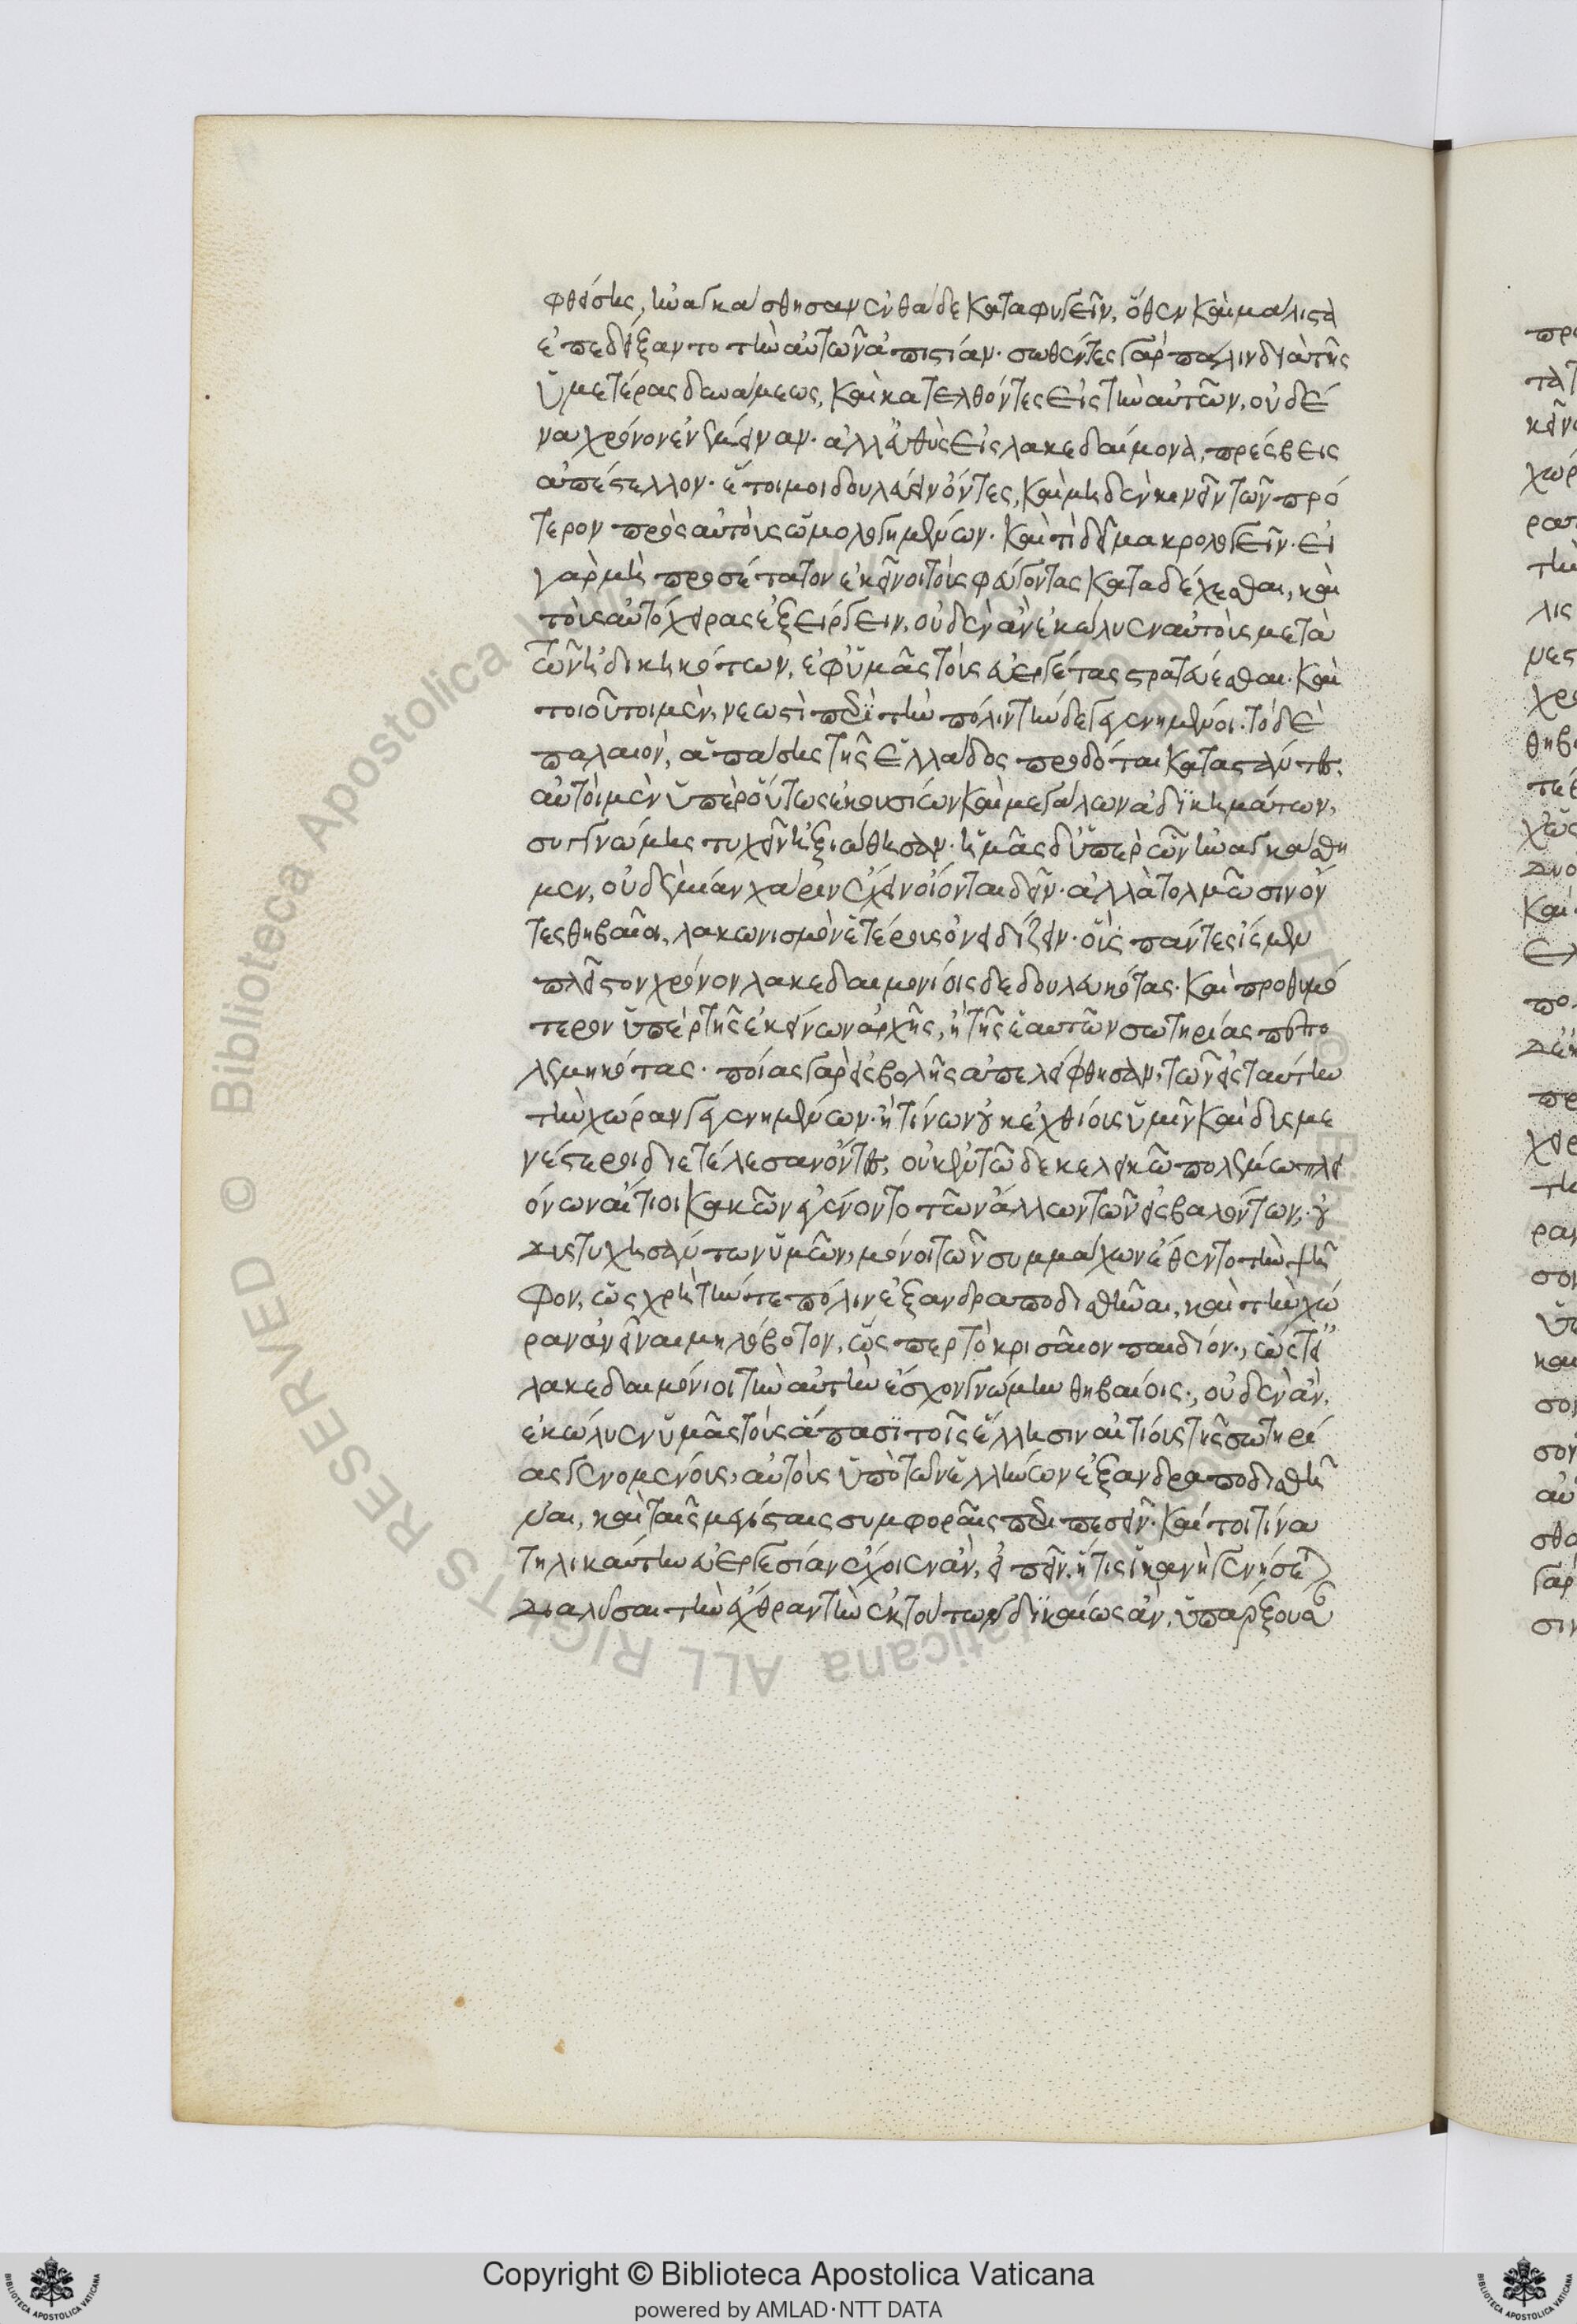 φθείσης, ἠναγκάσθησαν ἐνθάδε καταφυγεῖν, ὅθεν καὶ μάλιστα
ἐπεδείξαντο τὴν αὐτῶν ἀπιστίαν· σωθέντες γὰρ πάλιν διὰ τῆς
ὑμετέρας δυνάμεως, καὶ κατελθόντες εἰς τὴν αὐτῶν, οὐδέ
να χρόνον ἐνέμειναν· ἀλλ᾽ εὐθὺς εἰς λακεδαίμονα, πρέσβεις
ἀπέστελλον· ἕτοιμοι δουλεύειν ὄντες, καὶ μηδὲν κινεῖν τῶν πρό
τερον πρὸς αὐτοὺς ὡμολογημένων· καὶ τί δεῖ μακρολογεῖν· εἰ
γὰρ μὴ προσέταττον ἐκεῖνοι τοὺς φεύγοντας καταδέχεσθαι, καὶ
τοὺς αὐτόχειρας ἐξείργειν, οὐδὲν ἂν ἐκώλυεν αὐτοὺς μετὰ
τῶν ἠδικηκότων, ἐφ᾽ ὑμᾶς τοὺς εὐεργέτας στρατεύεσθαι· καὶ
τοιοῦτοι μὲν, νεωστὶ περὶ τὴν πόλιν τήνδε γεγενημένοι· τὸ δὲ
παλαιὸν, ἁπάσης τῆς ἑλλάδος προδόται καταστάντες,
αὐτοὶ μὲν ὑπὲρ οὕτως ἑκουσίων καὶ μεγάλων ἀδικημάτων,
συγγνώμης τυχεῖν ἠξιώθησαν· ἡμᾶς δ᾽ ὑπὲρ ὧν ἠναγκάσθη
μεν, οὐδεμίαν χάριν ἔχειν οἴονται δεῖν· ἀλλὰ τολμῶσιν ὄν
τες θηβαῖοι, λακωνισμὸν ἑτέροις ὀνειδίζειν· οὓς πάντες ἴσμεν
πλεῖστον χρόνον λακεδαιμονίοις δεδουλευκότας· καὶ προθυμό
τερον ὑπὲρ τῆς ἐκείνων ἀρχῆς, ἢ τῆς ἑαυτῶν σωτηρίας πεπο
λεμηκότας· ποίας γὰρ εἰσβολῆς ἀπελείφθησαν, τῶν εἰς ταύτην
τὴν χώραν γεγενημένων· ἢ τίνων οὐκ ἐχθίους ὑμῖν καὶ δυσμε
νέστεροι διετέλεσαν ὄντες, οὐκ ἐν τῷ δεκελεικῷ πολέμῳ πλει
όνων αἴτιοι κακῶν ἐγένοντο τῶν ἄλλων τῶν εἰσβαλόντων, οὐ
δυστυχησάντων ὑμῶν, μόνοι τῶν συμμάχων ἔθεντο τὴν ψῆ
φον, ὡς χρὴ τήν τε πόλιν ἐξανδραποδισθῆναι, καὶ τὴν χώ
ραν ἀνεῖναι μηλόβοτον, ὥσπερ τὸ κρισαῖον παιδίον, ὥστ᾽ εἰ
λακεδαιμόνιοι τὴν αὐτὴν ἔσχον γνώμην θηβαίοις, οὐδὲν ἂν
ἐκώλυεν ὑμᾶς τοὺς ἅπασι τοῖς ἕλλησιν αἰτίους τῆς σωτηρί
ας γενομένους, αὐτοὺς ὑπὸ τῶν ἑλλήνων ἐξανδραποδισθῆ
ναι, καὶ ταῖς μεγίσταις συμφοραῖς περιπεσεῖν· καίτοι τίνα
τηλικαύτην εὐεργεσίαν ἔχοιεν ἂν, εἰπεῖν, ἥτις ἱκανὴ γενήσεται
διαλῦσαι τὴν ἔχθραν τὴν ἐκ τούτων δικαίως ἂν, ὑπάρξουσαν
Copyright © Biblioteca Apostolica Vaticana
powered by AMLAD·NTT DATA